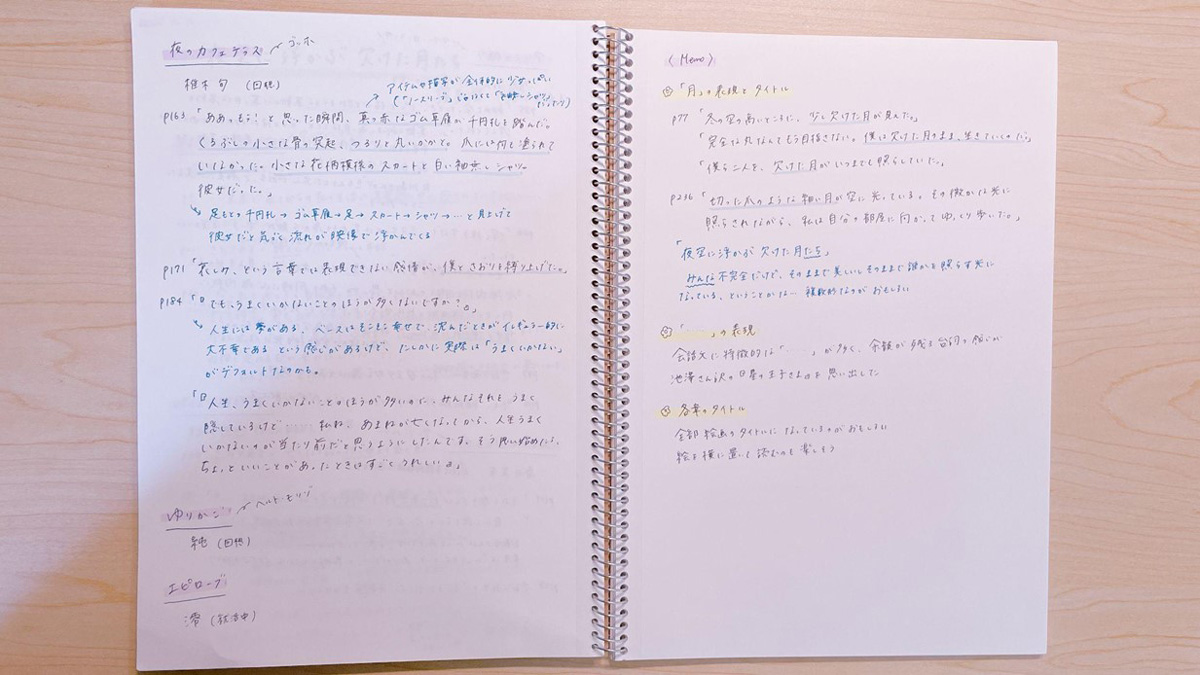 夜のカフェテラス
ゴッホ
椎木 旬 （回想）
アイテムや描写が全体的に少女っぽい
（「ノースリーブ」ではなくて「袖無しシャツ」だったり）
p163 「ああっもう！と思った瞬間、真っ赤なゴム草履が千円札を踏んだ。
くるぶしの小さな骨の突起、つるりと丸いかかと。爪には何も塗られて
いなかった。小さな花柄模様のスカートと白い袖無しシャツ。
彼女だった。」
足もとの千円札→ゴム草履→足→スカート→シャツ→…と見上げて
彼女だと気づく流れが映像で浮かんでくる
p171 「哀しみ、という言葉では表現できない感情が、僕とさおりを縛り上げた。」
p184 「『でも、うまくいかないことのほうが多くないですか？』」
人生には夢がある、ベースはそこそこ幸せで、沈んだときがイレギュラー的に
大不幸である という感じがあるけど、たしかに実際は「うまくいかない」
がデフォルトなのかも。
「『人生、うまくいかないことのほうが多いのに、みんなそれをうまく
隠しているけど……私ね、あまねが亡くなってから、人生うまく
いかないのが当たり前だと思うようにしたんです。そう思い始めたら、
ちょっといいことがあったときはすごくうれしい』」
ゆりかご
ベルト・モリゾ
純 （回想）
エピローグ
澪
〈Memo〉
① 「月」の表現とタイトル
p77 「冬の空の高いところに、少し欠けた月が見えた。」
「完全な丸なんてもう目指さない。僕は欠けた月のまま、生きていくのだ。」
「僕ら二人を、欠けた月がいつまでも照らしていた。」
p216 「切った爪のような細い月が空に光っている。その微かな光に
照らされながら、私は自分の部屋に向かってゆっくり歩いた。」
「夜空に浮かぶ欠けた月たち」
みんな不完全だけど、そのままで美しいしそのままで誰かを照らす光に
なっている、ということかな… 複数形なのがおもしろい
② 「……」の表現
会話文に特徴的な「……」が多く、余韻が残る台詞の感じが
池澤さん訳の星の王子さまを思い出した
③ 各章のタイトル
全部絵画のタイトルになっているのがおもしろい
絵を横に置いて読むのも楽しそう